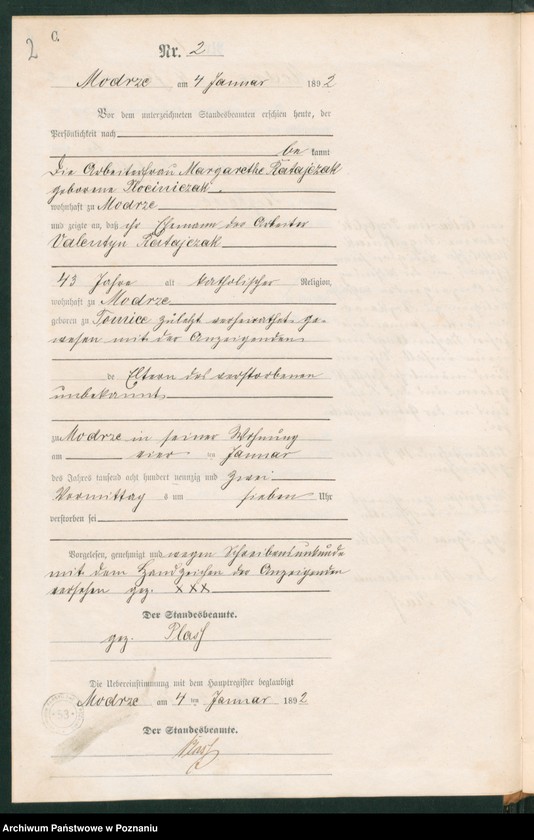 2
C.
Nr. 2
Modrze am 4 Januar 1892
Vor dem unterzeichneten Standesbeamten erschien heute, der
Persönlichkeit nach
be kannt
Die Arbeiterfrau Margarethe Ratajczak
geborene Kociniczak
wohnhaft zu Modrze
und zeigte an, daß ihr Ehemann der Arbeiter
Valentyn Ratajczak
43 Jahre alt katholischer Religion,
wohnhaft zu Modrze
geboren zu zuletzt verheirathet ge-
wesen mit der Anzeigenden
de Eltern des verstorbenen
unbekannt
zu Modrze in seiner Wohnung
am vier ten Januar
des Jahres tausend acht hundert neunzig und zwei
Vormittag s um sieben Uhr
verstorben sei
Vorgelesen, genehmigt und wegen Schreibensunkunde
mit dem Handzeichen der Anzeigenden
versehen gez. XXX
Der Standesbeamte.
gez.
Die Uebereinstimmung mit dem Hauptregister beglaubigt
Modrze am 4 ten Januar 1892
Der Standesbeamte.
53
Archiwum Państwowe w Poznaniu